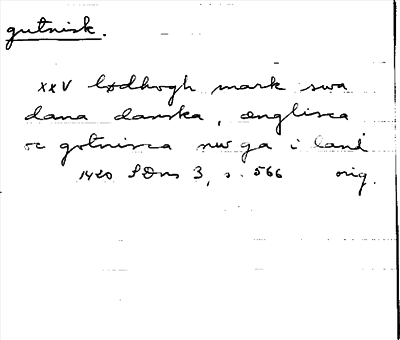 gutnisk.
xxv lødhogh mark swa
dana danska, ænglisca
oc gotnisca nw ga i land
1420 SDns 3, s. 566 orig.